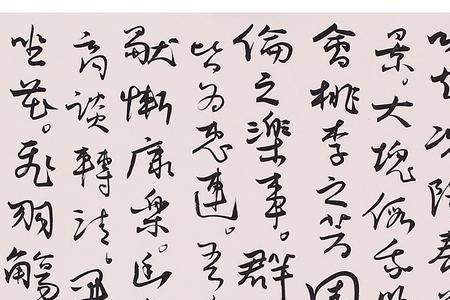 以也况陽春
景。大塊假我以
會桃李之芳園
倫之樂事。群
皆為惠連。吾
獨慚康樂。幽
高談轉清。開
坐花。飛羽觴